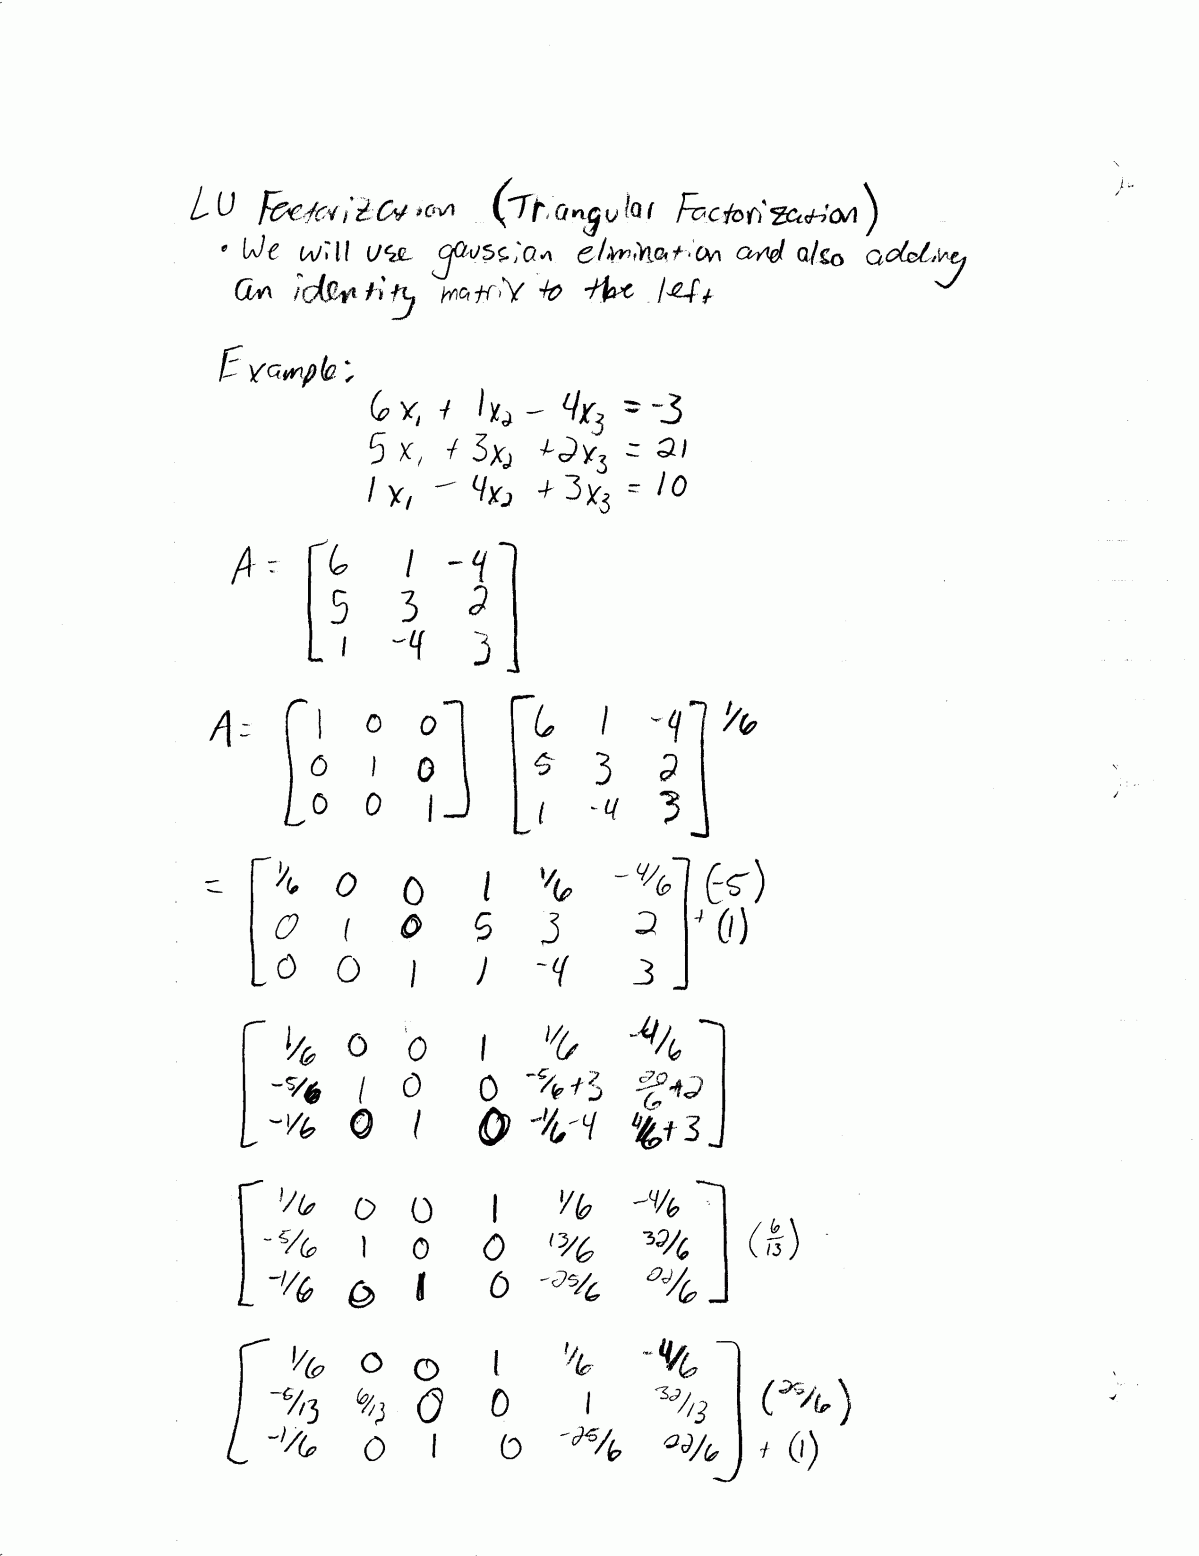 LU Factorization (Triangular Factorization)
• We will use gaussian elimination and also adding
an identity matrix to the left
Example:
6x₁ + 1x₂ - 4x₃ = -3
5x₁ + 3x₂ + 2x₃ = 21
1x₁ - 4x₂ + 3x₃ = 10
A = [6 1 -4
5 3 2
1 -4 3]
A = [1 0 0] [6 1 -4] 1/6
0 1 0 5 3 2
0 0 1 1 -4 3
= [1/6 0 0 1 1/6 -4/6] (-5)
0 1 0 5 3 2 + (1)
0 0 1 1 -4 3
[1/6 0 0 1 1/6 -4/6]
-5/6 1 0 0 -5/6+3 20/6+2
-1/6 0 1 0 -1/6-4 4/6+3
[1/6 0 0 1 1/6 -4/6]
-5/6 1 0 0 13/6 32/6 (6/13)
-1/6 0 1 0 -25/6 22/6
[1/6 0 0 1 1/6 -4/6]
-5/13 6/13 0 0 1 32/13 (25/6)
-1/6 0 1 0 -25/6 22/6 + (1)